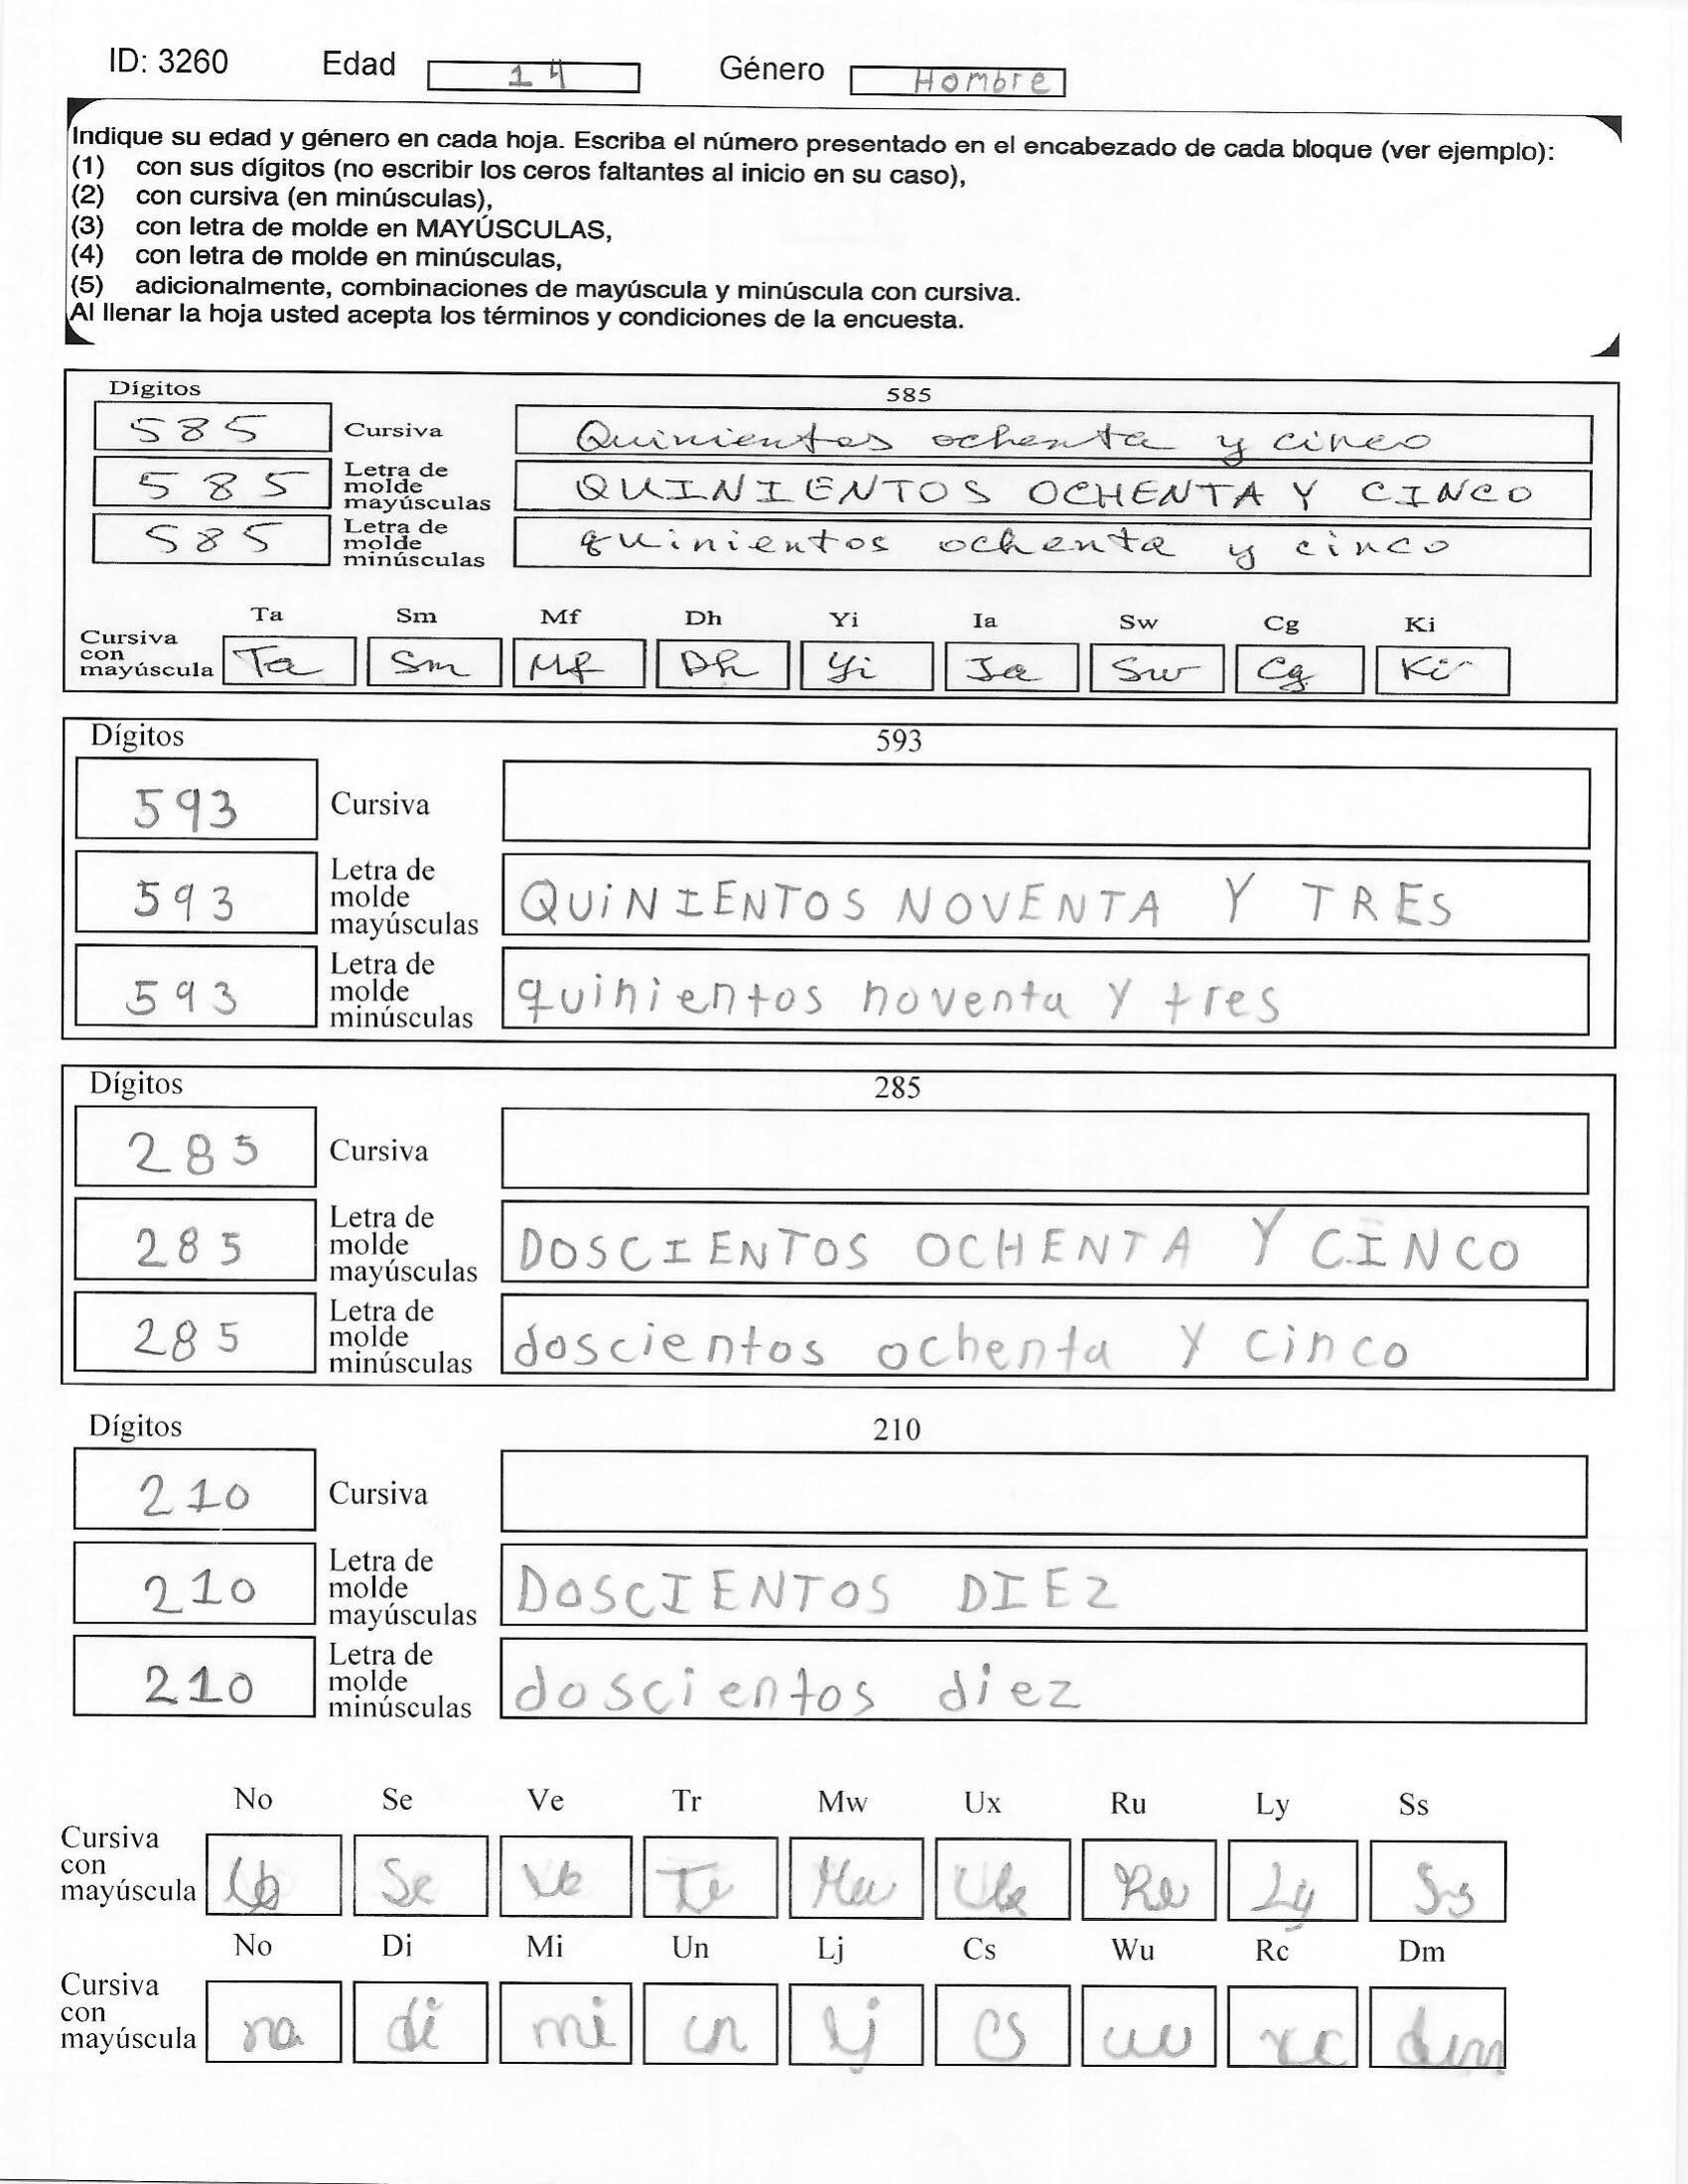 ID: 3260 Edad 14 Género Hombre
Indique su edad y género en cada hoja. Escriba el número presentado en el encabezado de cada bloque (ver ejemplo):
(1) con sus dígitos (no escribir los ceros faltantes al inicio en su caso),
(2) con cursiva (en minúsculas),
(3) con letra de molde en MAYÚSCULAS,
(4) con letra de molde en minúsculas,
(5) adicionalmente, combinaciones de mayúscula y minúscula con cursiva.
Al llenar la hoja usted acepta los términos y condiciones de la encuesta.
Dígitos 585
585 Cursiva Quinientos ochenta y cinco
585 Letra de molde mayúsculas QUINIENTOS OCHENTA Y CINCO
585 Letra de molde minúsculas quinientos ochenta y cinco
Ta Sm Mf Dh Yi Ia Sw Cg Ki
Cursiva con mayúscula Ta Sm Mf Dh Yi Ia Sw Cg Ki
Dígitos 593
593 Cursiva
593 Letra de molde mayúsculas QUiNIENTOS NOVENTA Y TRES
593 Letra de molde minúsculas quinientos noventa y tres
Dígitos 285
285 Cursiva
285 Letra de molde mayúsculas DOSCIENTOS OCHENTA Y CINCO
285 Letra de molde minúsculas doscientos ochenta y cinco
Dígitos 210
210 Cursiva
210 Letra de molde mayúsculas DOSCIENTOS DIEZ
210 Letra de molde minúsculas doscientos diez
No Se Ve Tr Mw Ux Ru Ly Ss
Cursiva con mayúscula Se Ve Ly Ss
No Di Mi Un Lj Cs Wu Rc Dm
Cursiva con mayúscula na di mi un lj cs dm